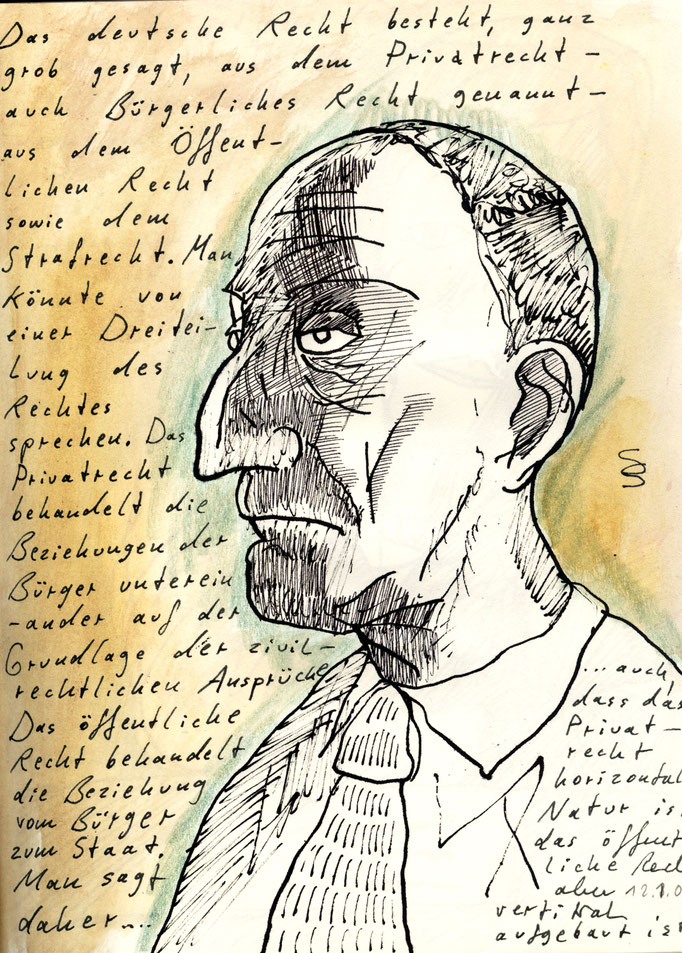 Das deutsche Recht besteht, ganz
grob gesagt, aus dem Privatrecht -
auch Bürgerliches Recht genannt -
aus dem Öffent-
lichen Recht
sowie dem
Strafrecht. Man
könnte von
einer Dreitei-
lung des
Rechtes
sprechen. Das
Privatrecht
behandelt die
Beziehungen der
Bürger unterein
-ander auf der
Grundlage der zivil-
rechtlichen Ansprüche
Das öffentliche
Recht behandelt
die Beziehung
vom Bürger
zum Staat.
Man sagt
daher....
... auch,
dass das
Privat-
recht
horizontal
Natur is
das öffent
liche Rech
aber 12.1.0
vertikal
aufgebaut ist